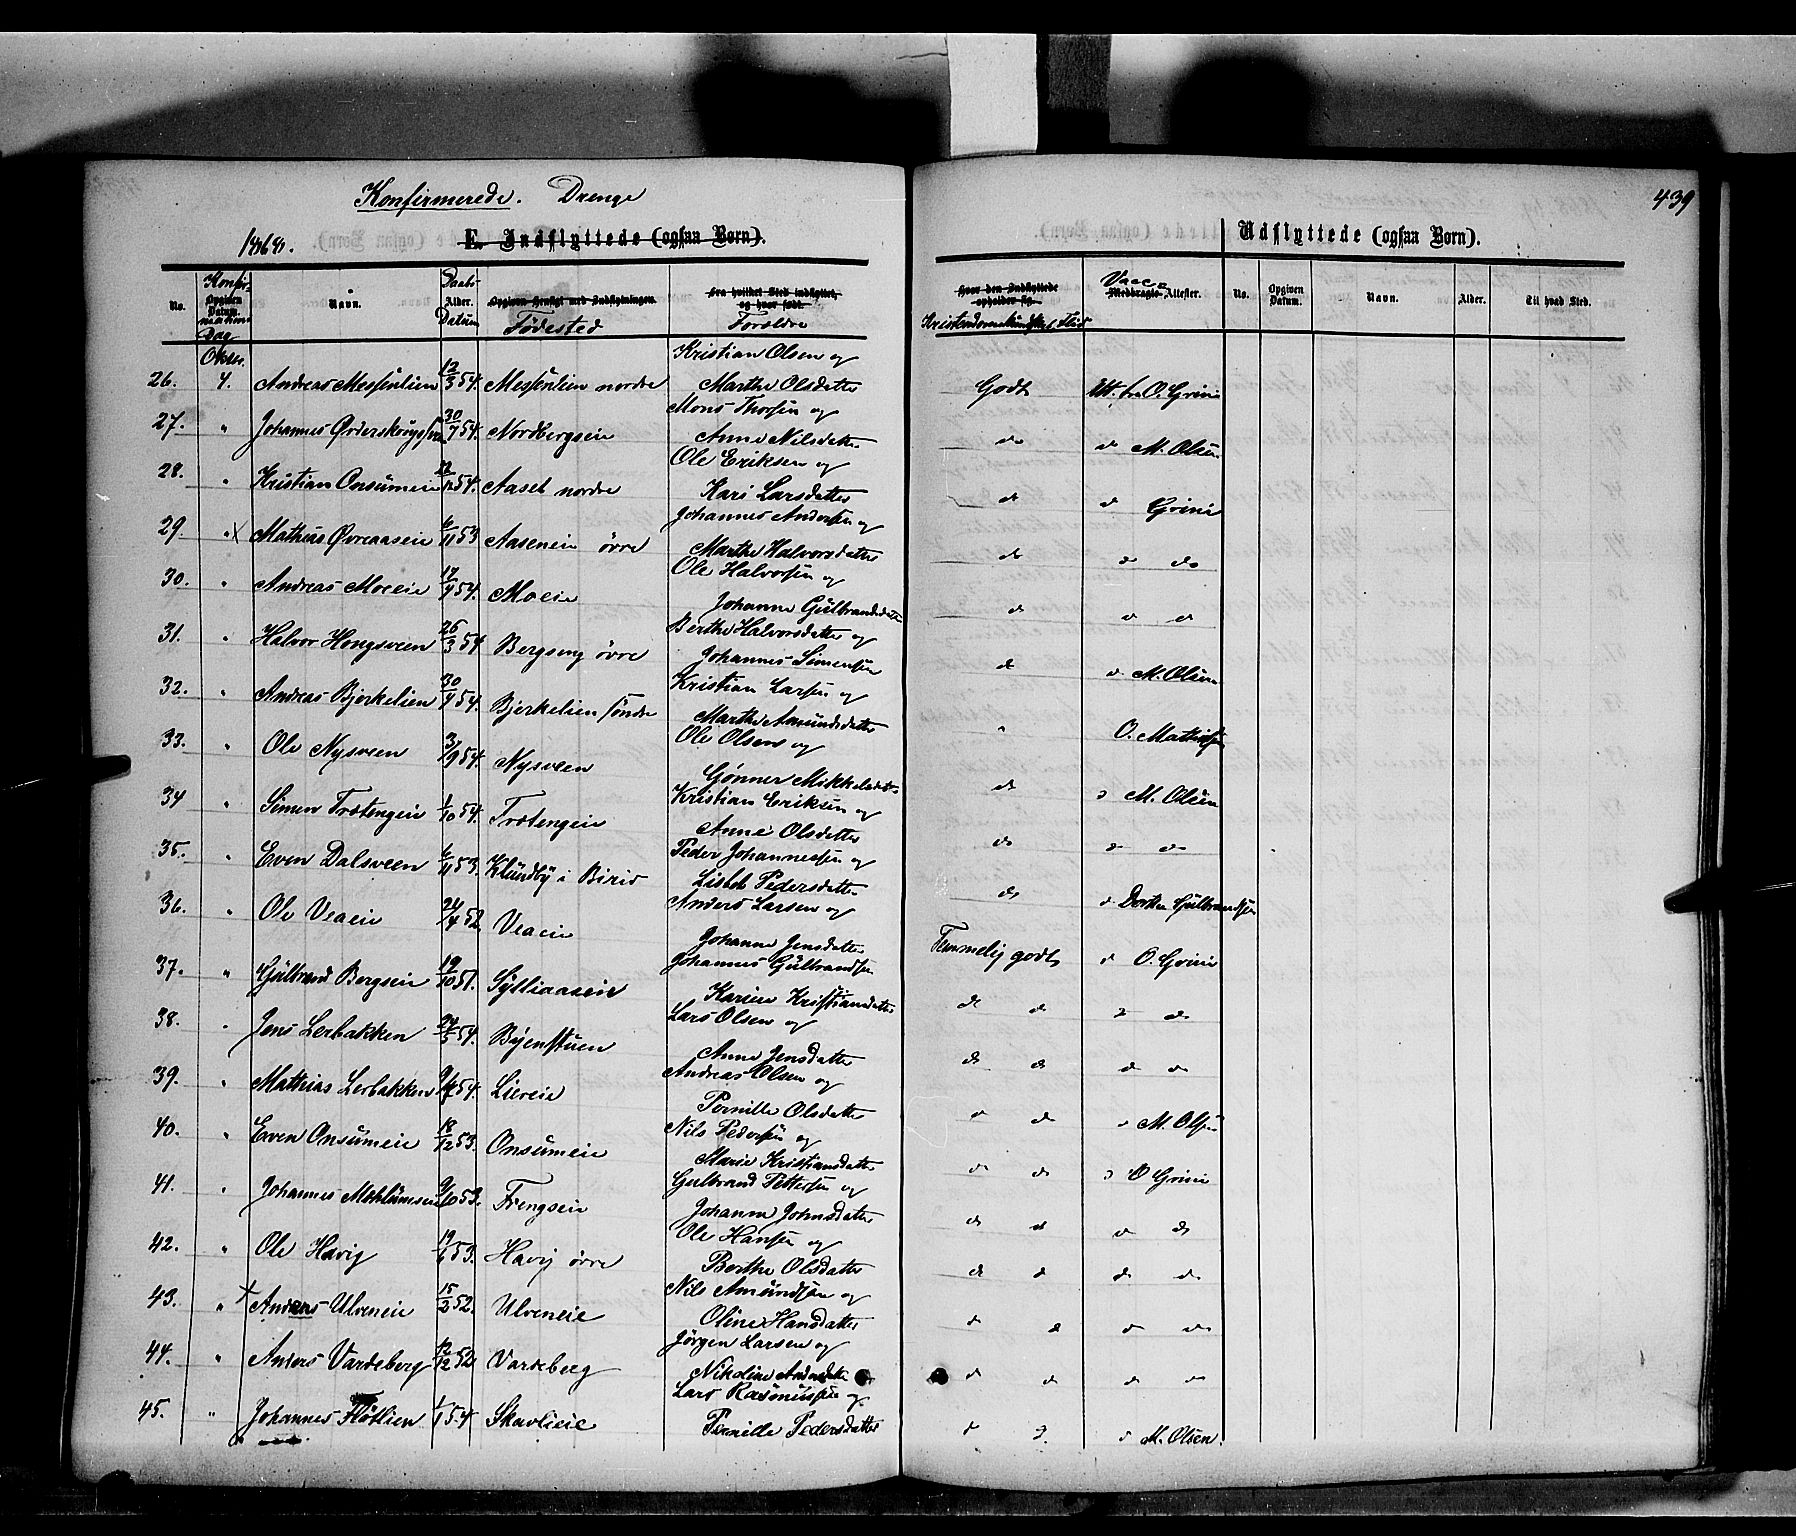 439
Konfirmerede. Drenge
1868.
E. Indflyttede (ogsaa Børn).
Udflyttede (ogsaa Børn).
No. Konfir- Opgiven Datum. mations Dag Navn. Daabs- Alder. Datum Opgiven Hensigt med Indflytningen. Fødested Fra hvilket Sted indflyttet, og hvor født. Forældre
Hvor den Indflyttede opholder sig. Kristendomskundskab Flid Vacc. Medbragte Attester. No. Opgiven Datum. Navn. Alder. Til hvad Sted.
Oktbr.
26. 4. Andreas Messenlien 12/3 54. Messenlien nordre Kristian Olsen og Marthe Olsdatter Godt Att. fra O. Grini
27. " Johannes 30/7 54. Nordbergseie Mons Thorsen og Anne Nilsdatter do d M. Olsen
28. " Kristian Onsumeie 54. Aaset nordre Ole Eriksen og Kari Larsdatter d d Grini
29. " x Mathias Øvreaaseie 6/11 53 Aaseneie øvre Johannes Andersen og Marthe Halvorsdatter d d do
30. " Andreas Moeeie 17/9 54. Moeie Ole Halvorsen og Johanne Gulbrandsdatter d d d
31. " Halvor Hongsveen 26/3 54 Bergseng øvre Berthe Halvorsdatter og Johannes Simensen d d M. Olsen
32. " Andreas Bjerkelien 30/4 54. Bjerkelien søndre Kristian Larsen og Marthe Amundsdatter " O. Mathisen
33. " Ole Nysveen 3/9 54. Nysveen Ole Olsen og Gønner Mikkelsdatter d d M. Olsen
34 " Simen Trætengeie 1/10 54. Trætengeie Kristian Eriksen og Anne Olsdatter d d d
35. " Even Dalsveen 6/11 53. Klundby i Birid Peder Johannessen og Lisbet Pedersdatter d d Dorthea Gulbrandsen
36. " Ole Veaeie 24/4 52. Veaeie Anders Larsen og Johanne Jensdatter Temmelig godt d O. Grini
37. " Gulbrand Bergseie 19/10 51. Sylliaaseie Johannes Gulbrandsen Karine Kristiansdatter d d d d
38. " Jens Lerbakken 24/5 54. Byenstuen Lars Olsen og Anne Jensdatter d d d d
39. " Mathias Lerbakken 54. Liereie Andreas Olsen og Pernille Olsdatter d d d M. Olsen
40. " Even Onsumeie 18/12 53. Onsumeie Nils Pedersen og Marie Kristiansdatter d d d O Grini
41. " Johannes 9/10 53. Frengseie Gulbrand Pettersen og Johanne Johnsdatter d d d d
42. " Ole Havig 19/6 53. Havig øvre Ole Hansen og Berthe Olsdatter d d d d
43. " x Anders Ulveneie 15/2 52. Ulveneie Nils Amundsen og Oline Hansdatter d d d d
44. " Anders Vardeberg 12/12 52 Vardeberg Jørgen Larsen og Nikoline Andersdatter d d d d
45. " Johannes Fløtlien 1/1 54 Skavlieie Lars Rasmussen og Pernille Pedersdatter d d d M. Olsen.